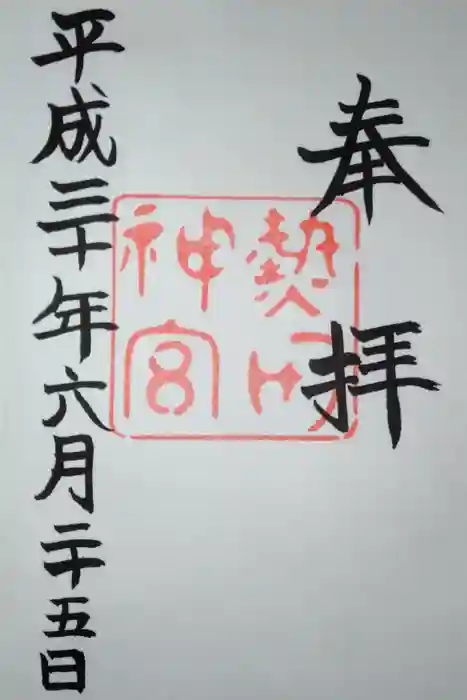 奉拝
熱田
神宮
平成三十年六月二十五日